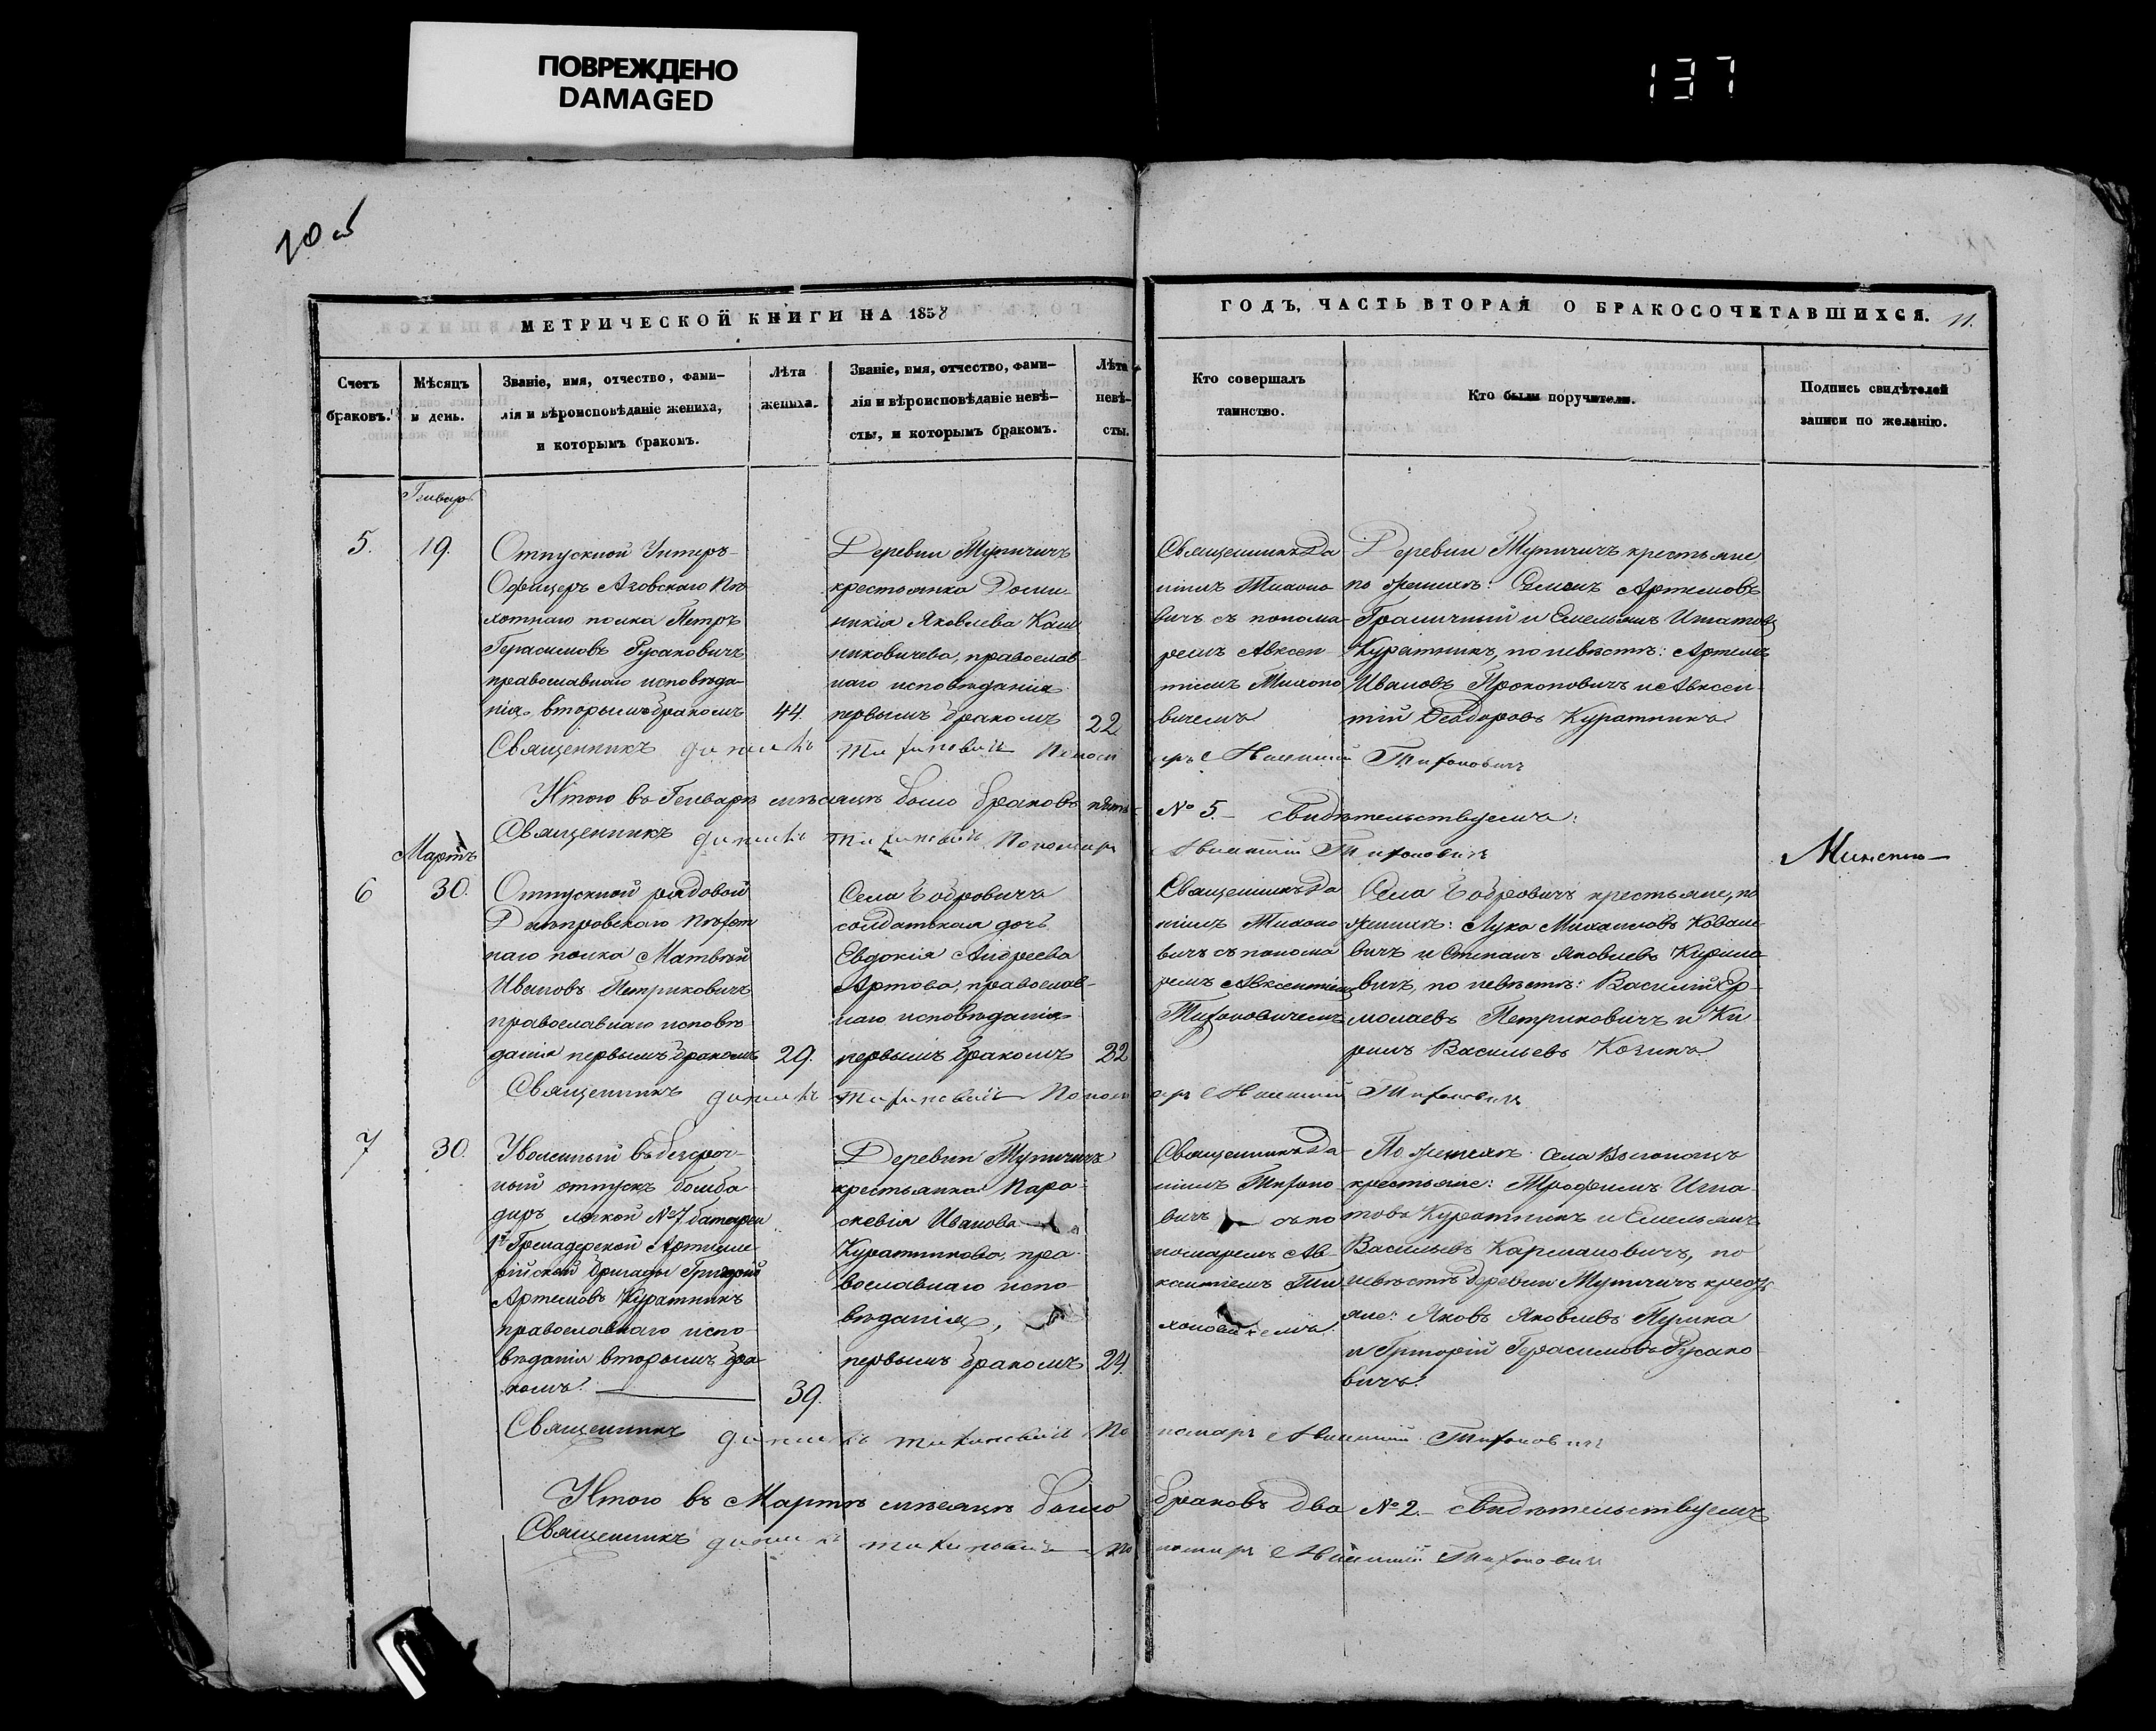 ПОВРЕЖДЕНО
DAMAGED
137
МЕТРИЧЕСКОЙ КНИГИ НА 1858
Счетъ
браковъ.
Мѣсяцъ
и день.
Званіе, имя, отчество, фами-
лія и вѣроисповѣданіе жениха,
и которымъ бракомъ.
Лѣта
жениха.
Званіе, имя, отчество, фами-
лія и вѣроисповѣданіе невѣ-
сты, и которымъ бракомъ.
Лѣта
невѣ-
сты.
ГОДЪ, ЧАСТЬ ВТОРАЯ О БРАКОСОЧЕТАВШИХСЯ. 11.
Кто совершалъ
таинство.
Кто были поручители.
Подпись свидѣтелей
записи по желанію.
Генварь
5.
19.
Отпускной Унтеръ-
Офицеръ Азовскаго Пѣ
хотнаго полка Петръ
Герасимовъ Русаковичъ
православнаго исповѣда-
нія вторымъ бракомъ
44.
Деревни Тупичичъ
крестьянка Доми-
никія Яковлева
православ-
наго исповѣданія
первымъ бракомъ
22.
Священникъ Да
ніилъ Тихоно
вичъ съ понома
ремъ Авксен
тіемъ Тихоно
вичемъ
Деревни Тупичичъ крестьяне
по женихѣ: Семенъ Артемовъ
и Емельянъ Игнатовъ
Куратникъ, по невѣстѣ: Артемъ
Ивановъ Прокоповичъ и Авксен-
тій Ѳеодоровъ Куратникъ
Священникъ Даніилъ Тихоновичъ Пономарь Авксентій Тихоновичъ
Итого въ Генварѣ мѣсяцѣ было браковъ пять № 5. – свидѣтельствуемъ:
Священникъ Даніилъ Тихоновичъ Пономарь Авксентій Тихоновичъ
Мартъ
6
30.
Отпускной рядовой
Днѣпровскаго Пѣхот
наго полка Матвѣй
Ивановъ Петриковичъ
православнаго исповѣ
данія первымъ бракомъ
29.
Села Бобровичъ
солдатская дочь
Евдокія Андреева
православ-
наго исповѣданія
первымъ бракомъ
22
Священникъ Да
ніилъ Тихоно
вичъ съ понома
ремъ Авксентіемъ
Тихоновичемъ
Села Бобровичъ крестьяне, по
женихѣ: Лука Михаиловъ Ковале
вичъ и Степанъ Яковлевъ Кирило
вичъ, по невѣстѣ: Василій Ер-
молаевъ Петриковичъ и Ки-
рилъ Васильевъ
Священникъ Даніилъ Тихоновичъ Пономарь Авксентій Тихоновичъ
7
30.
Уволенный въ безсроч-
ный отпускъ бомба
диръ легкой №7 батареи
1й Гренадерской Артилле
рійской бригады Григорій
Артемовъ Куратникъ
православнаго испо-
вѣданія вторымъ бра
комъ.
39.
Деревни Тупичичъ
крестьянка Пара-
скевія Иванова
Куратникова, пра-
вославнаго испо-
вѣданія,
первымъ бракомъ
24.
Священникъ Да-
ніилъ Тихоно
вичъ съ по
номаремъ Ав-
ксентіемъ Ти
хоновичемъ.
По женихѣ села
крестьяне: Трофимъ Игна-
товъ Куратникъ и Емельянъ
Васильевъ Кармановичъ, по
невѣстѣ деревни Тупичичъ крестъ
яне: Яковъ Яковлевъ
и Григорій Герасимовъ Русако-
вичъ.
Священникъ Даніилъ Тихоновичъ Пономарь Авксентій Тихоновичъ
Итого въ Мартѣ мѣсяцѣ было браковъ два №2. – свидѣтельствуемъ
Священникъ Даніилъ Тихоновичъ Пономарь Авксентій Тихоновичъ